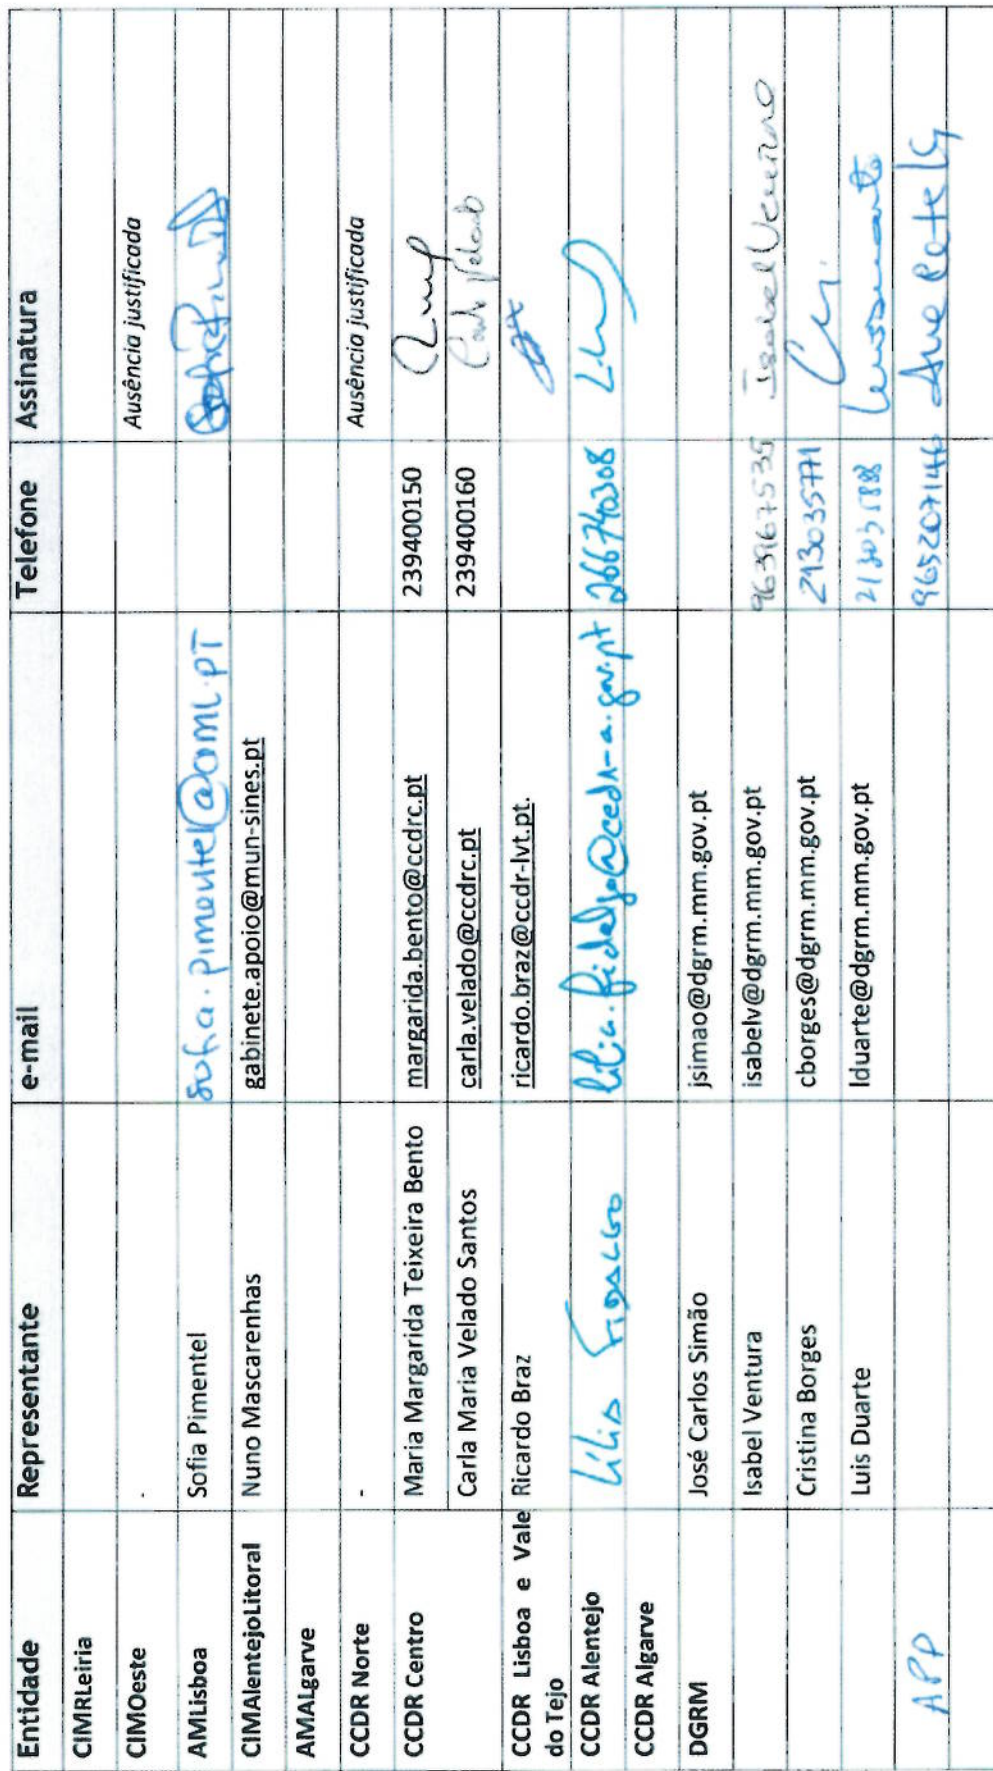 Entidade Representante e-mail Telefone Assinatura
CIMRLeiria
CIMOeste - Ausência justificada
AMLisboa Sofia Pimentel sofia.pimentel@aml.pt
CIMAlentejoLitoral Nuno Mascarenhas gabinete.apoio@mun-sines.pt
AMALgarve
CCDR Norte - Ausência justificada
CCDR Centro Maria Margarida Teixeira Bento margarida.bento@ccdrc.pt 239400150
Carla Maria Velado Santos carla.velado@ccdrc.pt 239400160 Carla Velado
CCDR Lisboa e Vale
do Tejo Ricardo Braz ricardo.braz@ccdr-lvt.pt.
CCDR Alentejo Lília Fidalgo lilia.fidalgo@ccdr-a.gov.pt 266740308
CCDR Algarve
DGRM José Carlos Simão jsimao@dgrm.mm.gov.pt
Isabel Ventura isabelv@dgrm.mm.gov.pt 963967535 Isabel Ventura
Cristina Borges cborges@dgrm.mm.gov.pt 213035771
Luis Duarte lduarte@dgrm.mm.gov.pt
APP 965207146